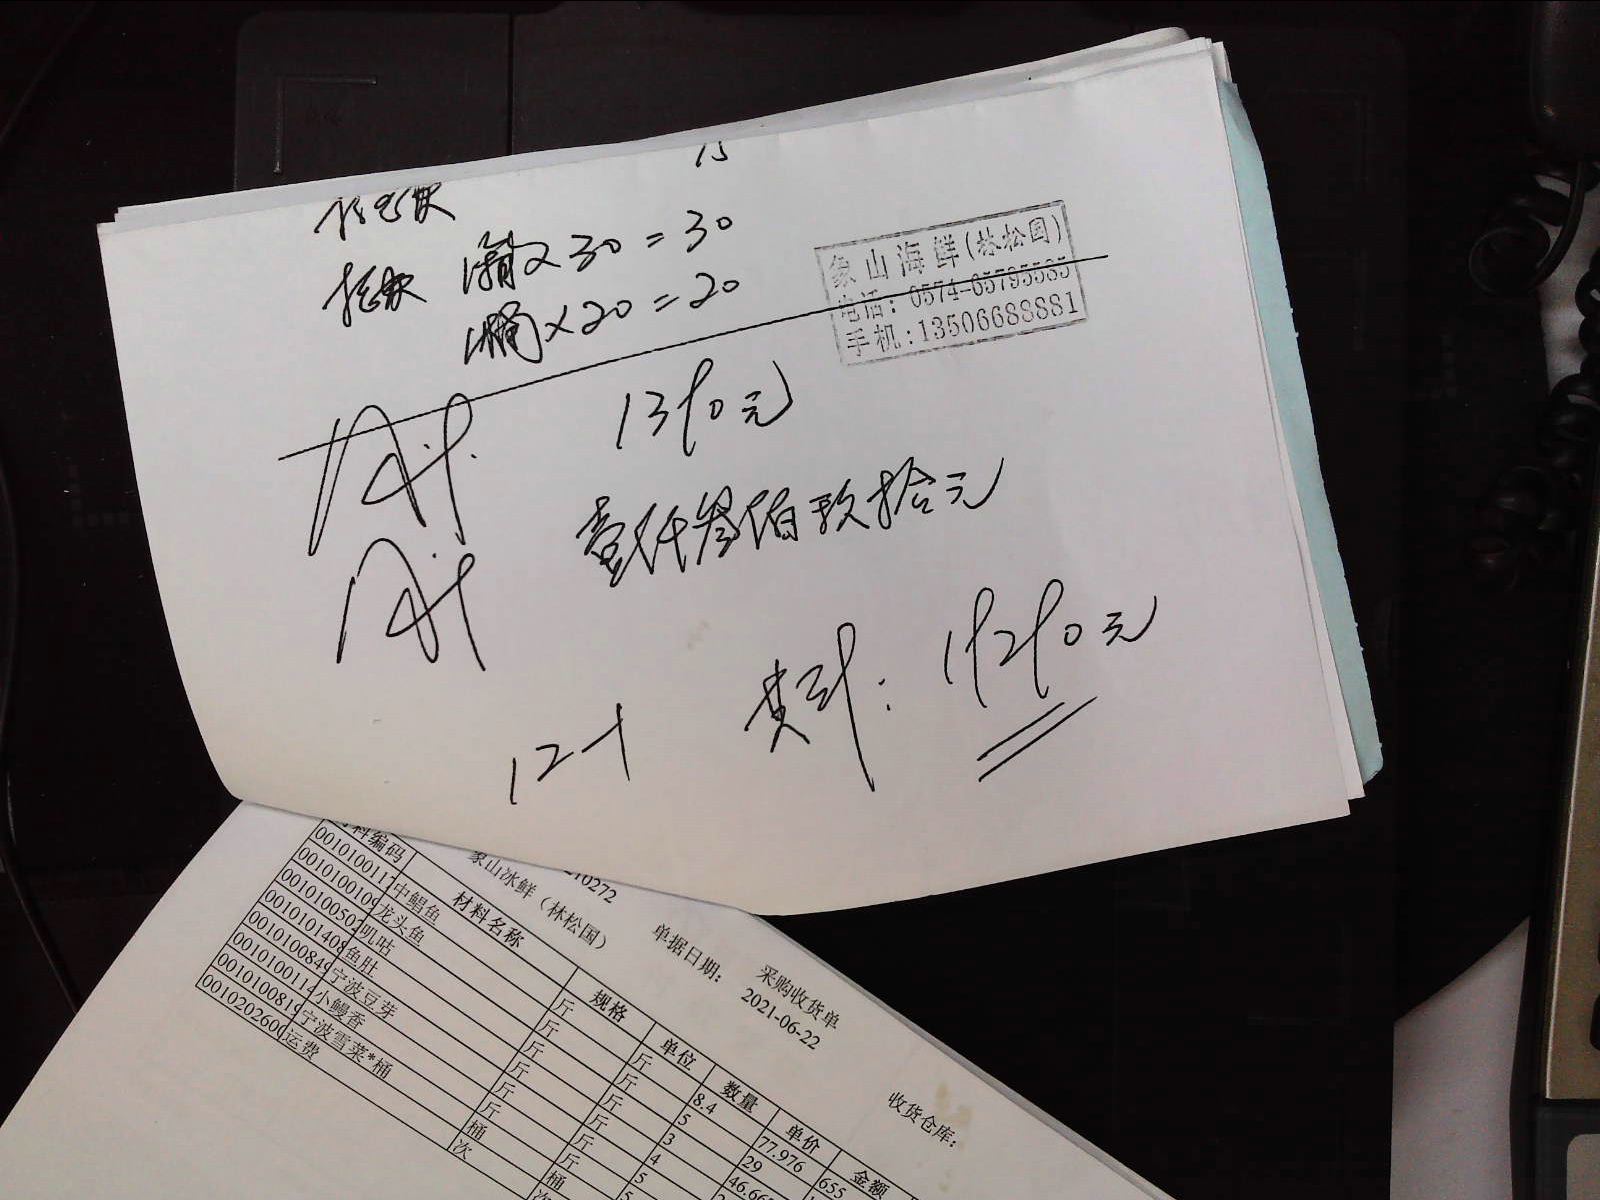 15
托运费
托运费 1箱×30=30
1桶×20=20
象山海鲜(林松国)
电话：0574-65795585
手机:13506688881
1390元
壹仟叁佰玖拾元
共计：19290元
采购收货单
10272 单据日期： 2021-06-22
象山冰鲜（林松国） 收货仓库：
料编码 材料名称 规格 单位 数量 单价 金额
001010011 中鲳鱼 斤 斤 8.4 77.976 655
001010010 龙头鱼 斤 斤 5 29
001010050 叽咕 斤 斤 3 46.66
001010140 鱼肚 斤 斤 4
001010084 宁波豆芽 斤 斤 5
001010011 小鳗香 斤 斤 5
001010081 宁波雪菜*桶 桶 桶
001020260 运费 次 次